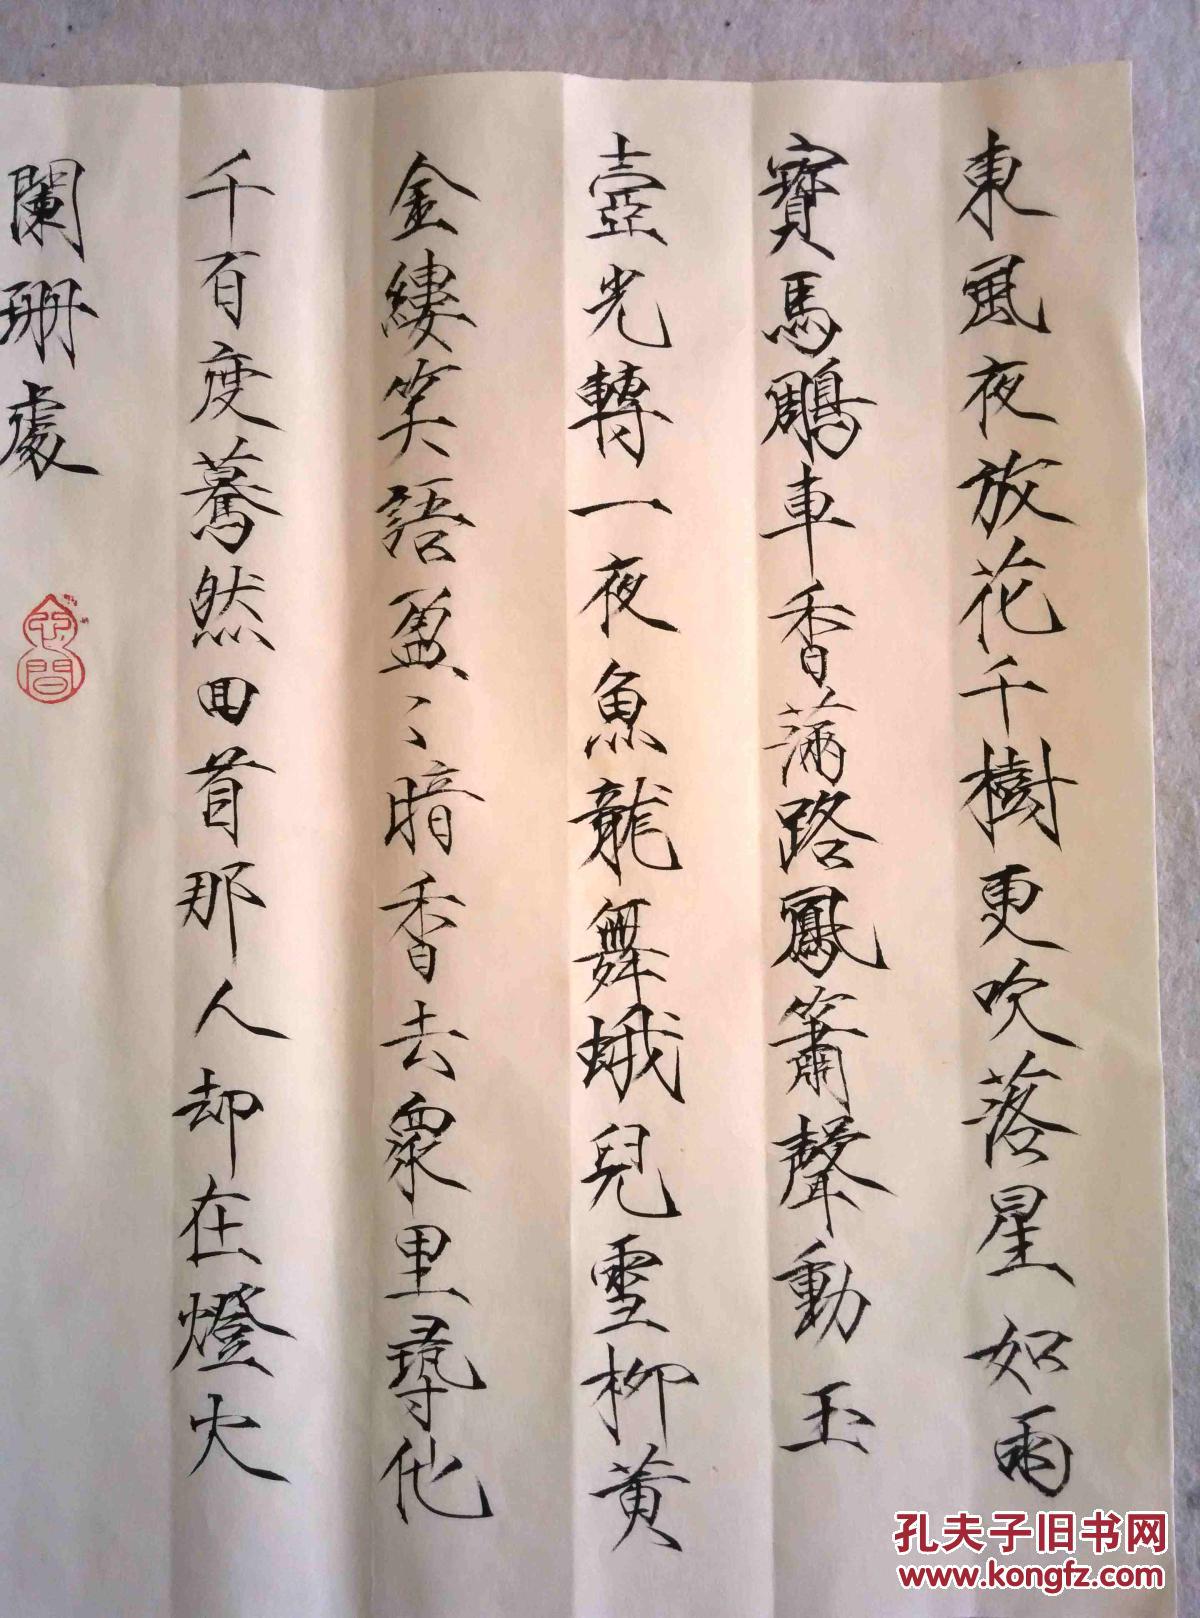 東風夜放花千樹更吹落星如雨
寶馬鵰車香滿路鳳簫聲動玉
壺光轉一夜魚龍舞蛾兒雪柳黃
金縷笑語盈〻暗香去衆里尋他
千百度驀然回首那人却在燈火
闌珊處
孔夫子旧书网
www.kongfz.com